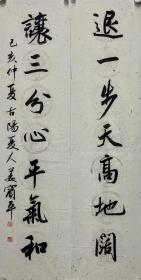 退一步天高地闊
讓三分心平氣和
己亥仲夏古陽夏人姜爾平